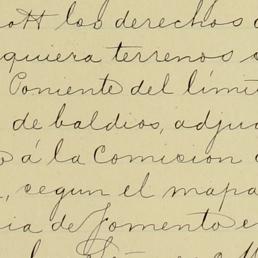 ott los derechos
quiera terrenos
Poniente del lími
de baldios, adju
á la Comision
, segun el mapa
ia de Fomento e